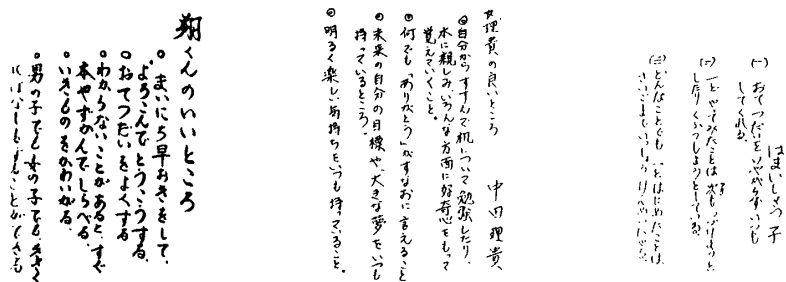 (一) おてつだいをいやがらずいつも
してくれる。
(二) 一どやってみたことは
したりくふうしようとしている。
(三) どんなことでも一どはじめたことは
さいごまでいっしょうけんめい
理貴の良いところ
中田理貴
◎自分からすすんで机について勉強したり、
水に親しみ、いろんな方面に好奇心をもって
覚えていくこと。
◎何でも「ありがとう」がすなおに言えること
◎未来の自分の目標や、大きな夢をいつも
持っているところ。
◎明るく楽しい気持ちをいつも持っていること。
翔くんのいいところ
○まいにち早おきをして、
よろこんでとうこうする。
○おてつだいをよくする
○わからないことがあると、すぐ
本やずかんでしらべる。
○いきものをかわいがる。
○男の子でも女の子でも